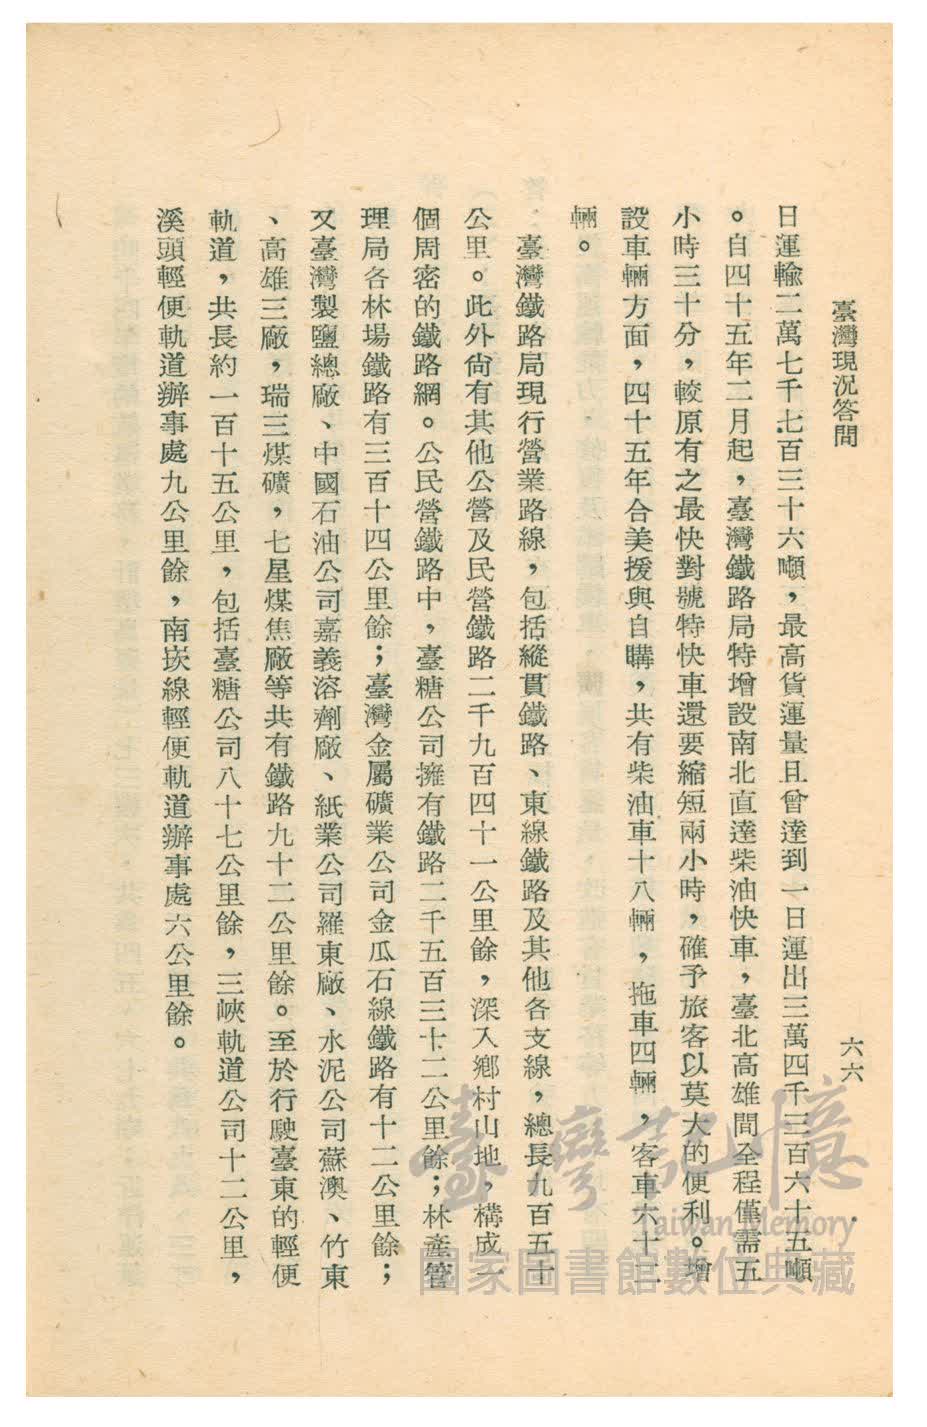 臺灣現況答問
六六
日運輸二萬七千七百三十六噸，最高貨運量且曾達到一日運出三萬四千三百六十五噸
。自四十五年二月起，臺灣鐵路局特增設南北直達柴油快車，臺北高雄間全程僅需五
小時三十分，較原有之最快對號特快車還要縮短兩小時，確予旅客以莫大的便利。增
設車輛方面，四十五年合美援與自購，共有柴油車十八輛，拖車四輛，客車六十二
輛。
臺灣鐵路局現行營業路線，包括縱貫鐵路、東線鐵路及其他各支線，總長九百五十
公里。此外尚有其他公營及民營鐵路二千九百四十一公里餘，深入鄉村山地，構成一
個周密的鐵路網。公民營鐵路中，臺糖公司擁有鐵路二千五百三十二公里餘；林產管
理局各林場鐵路有三百十四公里餘；臺灣金屬礦業公司金瓜石線鐵路有十二公里餘；
又臺灣製鹽總廠、中國石油公司嘉義溶劑廠、紙業公司羅東廠、水泥公司蘇澳、竹東
、高雄三廠，瑞三煤礦，七星煤焦廠等共有鐵路九十二公里餘。至於行駛臺東的輕便
軌道，共長約一百十五公里，包括臺糖公司八十七公里餘，三峽軌道公司十二公里，
溪頭輕便軌道辦事處九公里餘，南崁線輕便軌道辦事處六公里餘。
臺灣記憶
Taiwan Memory
國家圖書館數位典藏